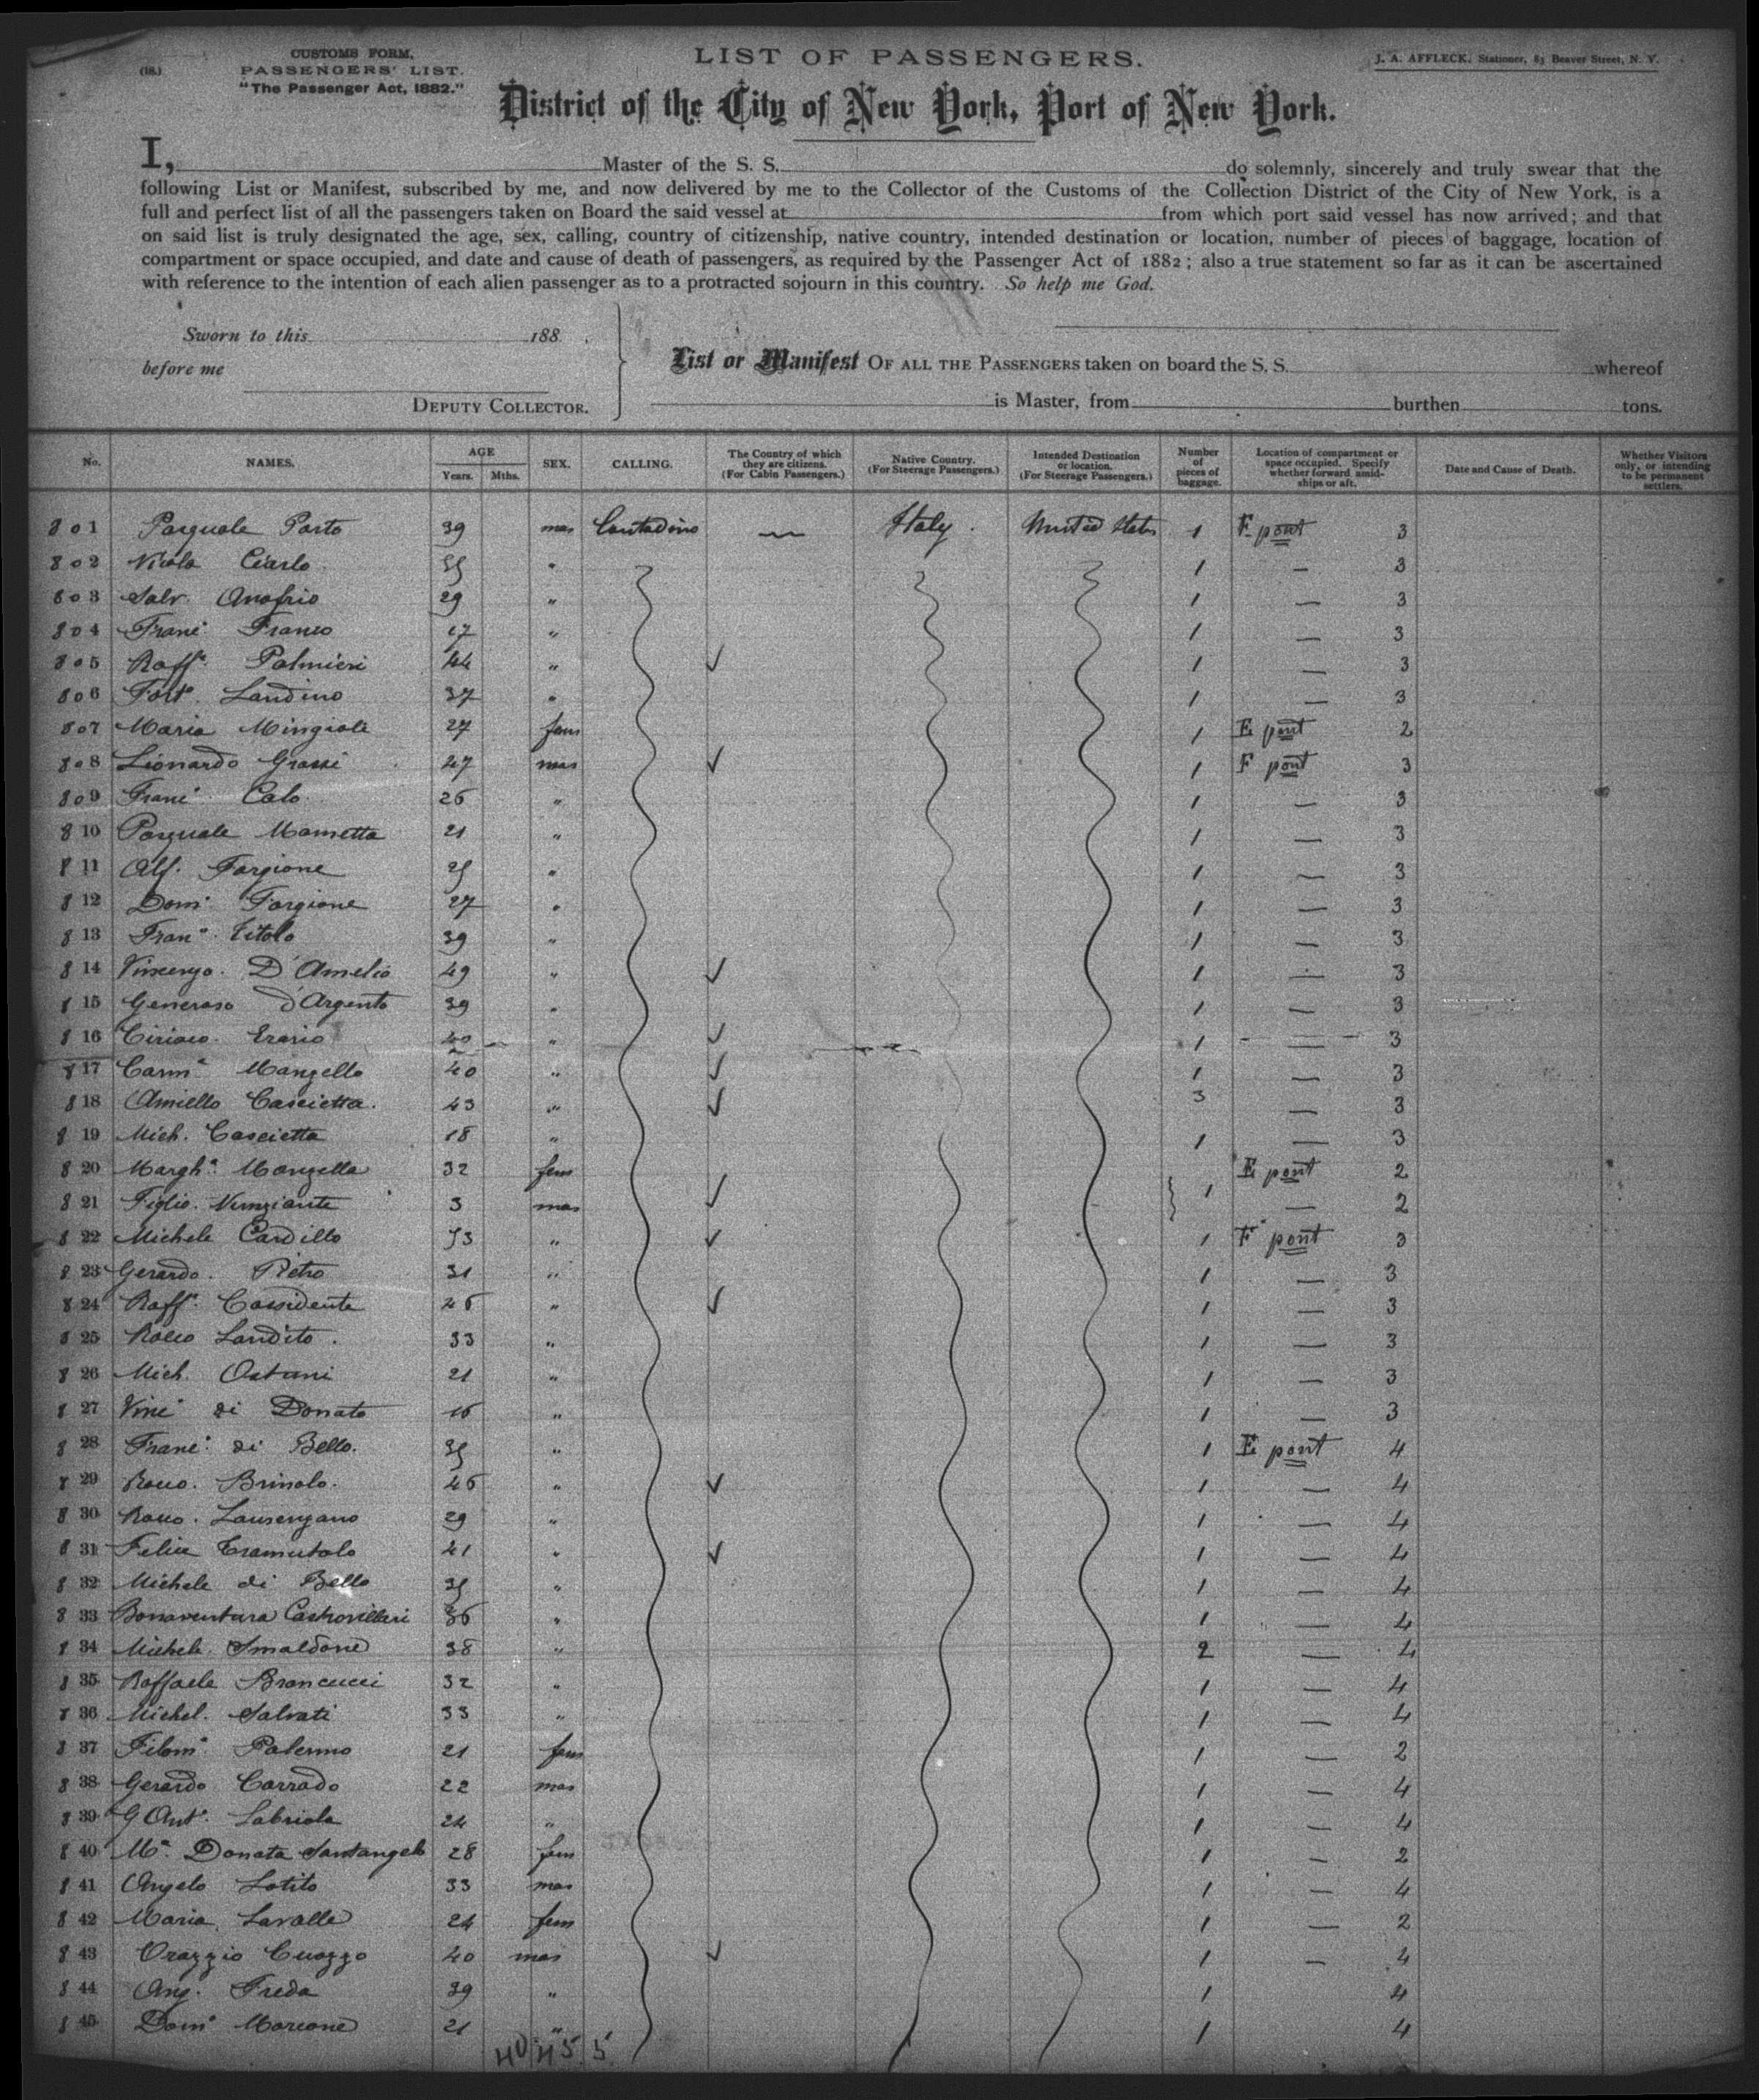 CUSTOMS FORM,
(18.) PASSENGERS' LIST.
"The Passenger Act, 1882."
LIST OF PASSENGERS.
J. A. AFFLECK, Stationer, 83 Beaver Street, N. Y.
District of the City of New York, Port of New York.
I, Master of the S. S. do solemnly, sincerely and truly swear that the
following List or Manifest, subscribed by me, and now delivered by me to the Collector of the Customs of the Collection District of the City of New York, is a
full and perfect list of all the passengers taken on Board the said vessel at from which port said vessel has now arrived; and that
on said list is truly designated the age, sex, calling, country of citizenship, native country, intended destination or location, number of pieces of baggage, location of
compartment or space occupied, and date and cause of death of passengers, as required by the Passenger Act of 1882; also a true statement so far as it can be ascertained
with reference to the intention of each alien passenger as to a protracted sojourn in this country. So help me God.
Sworn to this 188 .
before me
DEPUTY COLLECTOR.
List or Manifest OF ALL THE PASSENGERS taken on board the S. S. whereof
is Master, from burthen tons.
No. NAMES. AGE Years. Mths. SEX. CALLING. The Country of which they are citizens. (For Cabin Passengers.) Native Country. (For Steerage Passengers.) Intended Destination or location. (For Steerage Passengers.) Number of pieces of baggage. Location of compartment or space occupied. Specify whether forward, amidships or aft. Date and Cause of Death. Whether Visitors only, or intending to be permanent settlers.
801 Pasquale Porto 39 mas Contadino — Italy. United States 1 F pont 3
802 Nicola Ciarlo 35 " 1 — 3
803 Salv. Onofrio 29 " 1 — 3
804 Franc. Franco 17 " 1 — 3
805 Raffe. Palmieri 44 " ✓ 1 — 3
806 Forto. Landino 37 " 1 — 3
807 Maria Mingiole 27 fem 1 E pont 2
808 Lionardo Grassi 47 mas ✓ 1 F pont 3
809 Franc. Calo 26 " 1 — 3
810 Pasquale Mametta 21 " 1 — 3
811 Alf. Forgione 25 " 1 — 3
812 Dom. Forgione 27 " 1 — 3
813 Fran. Titolo 39 " 1 — 3
814 Vincenzo. D'Amelio 49 " ✓ 1 — 3
815 Generoso d'Argento 39 " 1 — 3
816 Ciriaco. Erario 40 " ✓ 1 — 3
817 Carm. Manzello 40 " ✓ 1 — 3
818 Aniello Cascietta. 43 " ✓ 3 — 3
819 Mich. Cascietta 18 " 1 — 3
820 Marghа. Manzella 32 fem E pont 2
821 Figlio. Nunziante 3 mas ✓ 1 — 2
822 Michele Cardillo 53 " ✓ 1 F pont 3
823 Gerardo. Pietro 31 " 1 — 3
824 Raffe. Cassidente 46 " ✓ 1 — 3
825 Rocco Landito. 33 " 1 — 3
826 Mich. Ostuni 21 " 1 — 3
827 Vinc. di Donato 16 " 1 — 3
828 Franc. di Bello. 35 " 1 E pont 4
829 Rocco. Brinolo. 46 " ✓ 1 — 4
830 Rocco. Laurenzano 29 " 1 — 4
831 Felice Tramutolo 41 " ✓ 1 — 4
832 Michele di Bello 35 " 1 — 4
833 Bonaventura Castrovillari 36 " 1 — 4
834 Michele. Smaldone 38 " 2 — 4
835 Raffaele Brancucci 32 " 1 — 4
836 Michel. Salvati 33 " 1 — 4
837 Filom. Palermo 21 fem 1 — 2
838 Gerardo Carrado 22 mas 1 — 4
839 G Ant. Labriola 24 " 1 — 4
840 Ma. Donata Santangelo 28 fem 1 — 2
841 Angelo Lotito 33 mas 1 — 4
842 Maria, Lavalle 24 fem 1 — 2
843 Orazzio Cuozzo 40 mas ✓ 1 — 4
844 Ang. Freda 39 " 1 4
845 Dom. Marcone 21 " 1 4
40 45 5